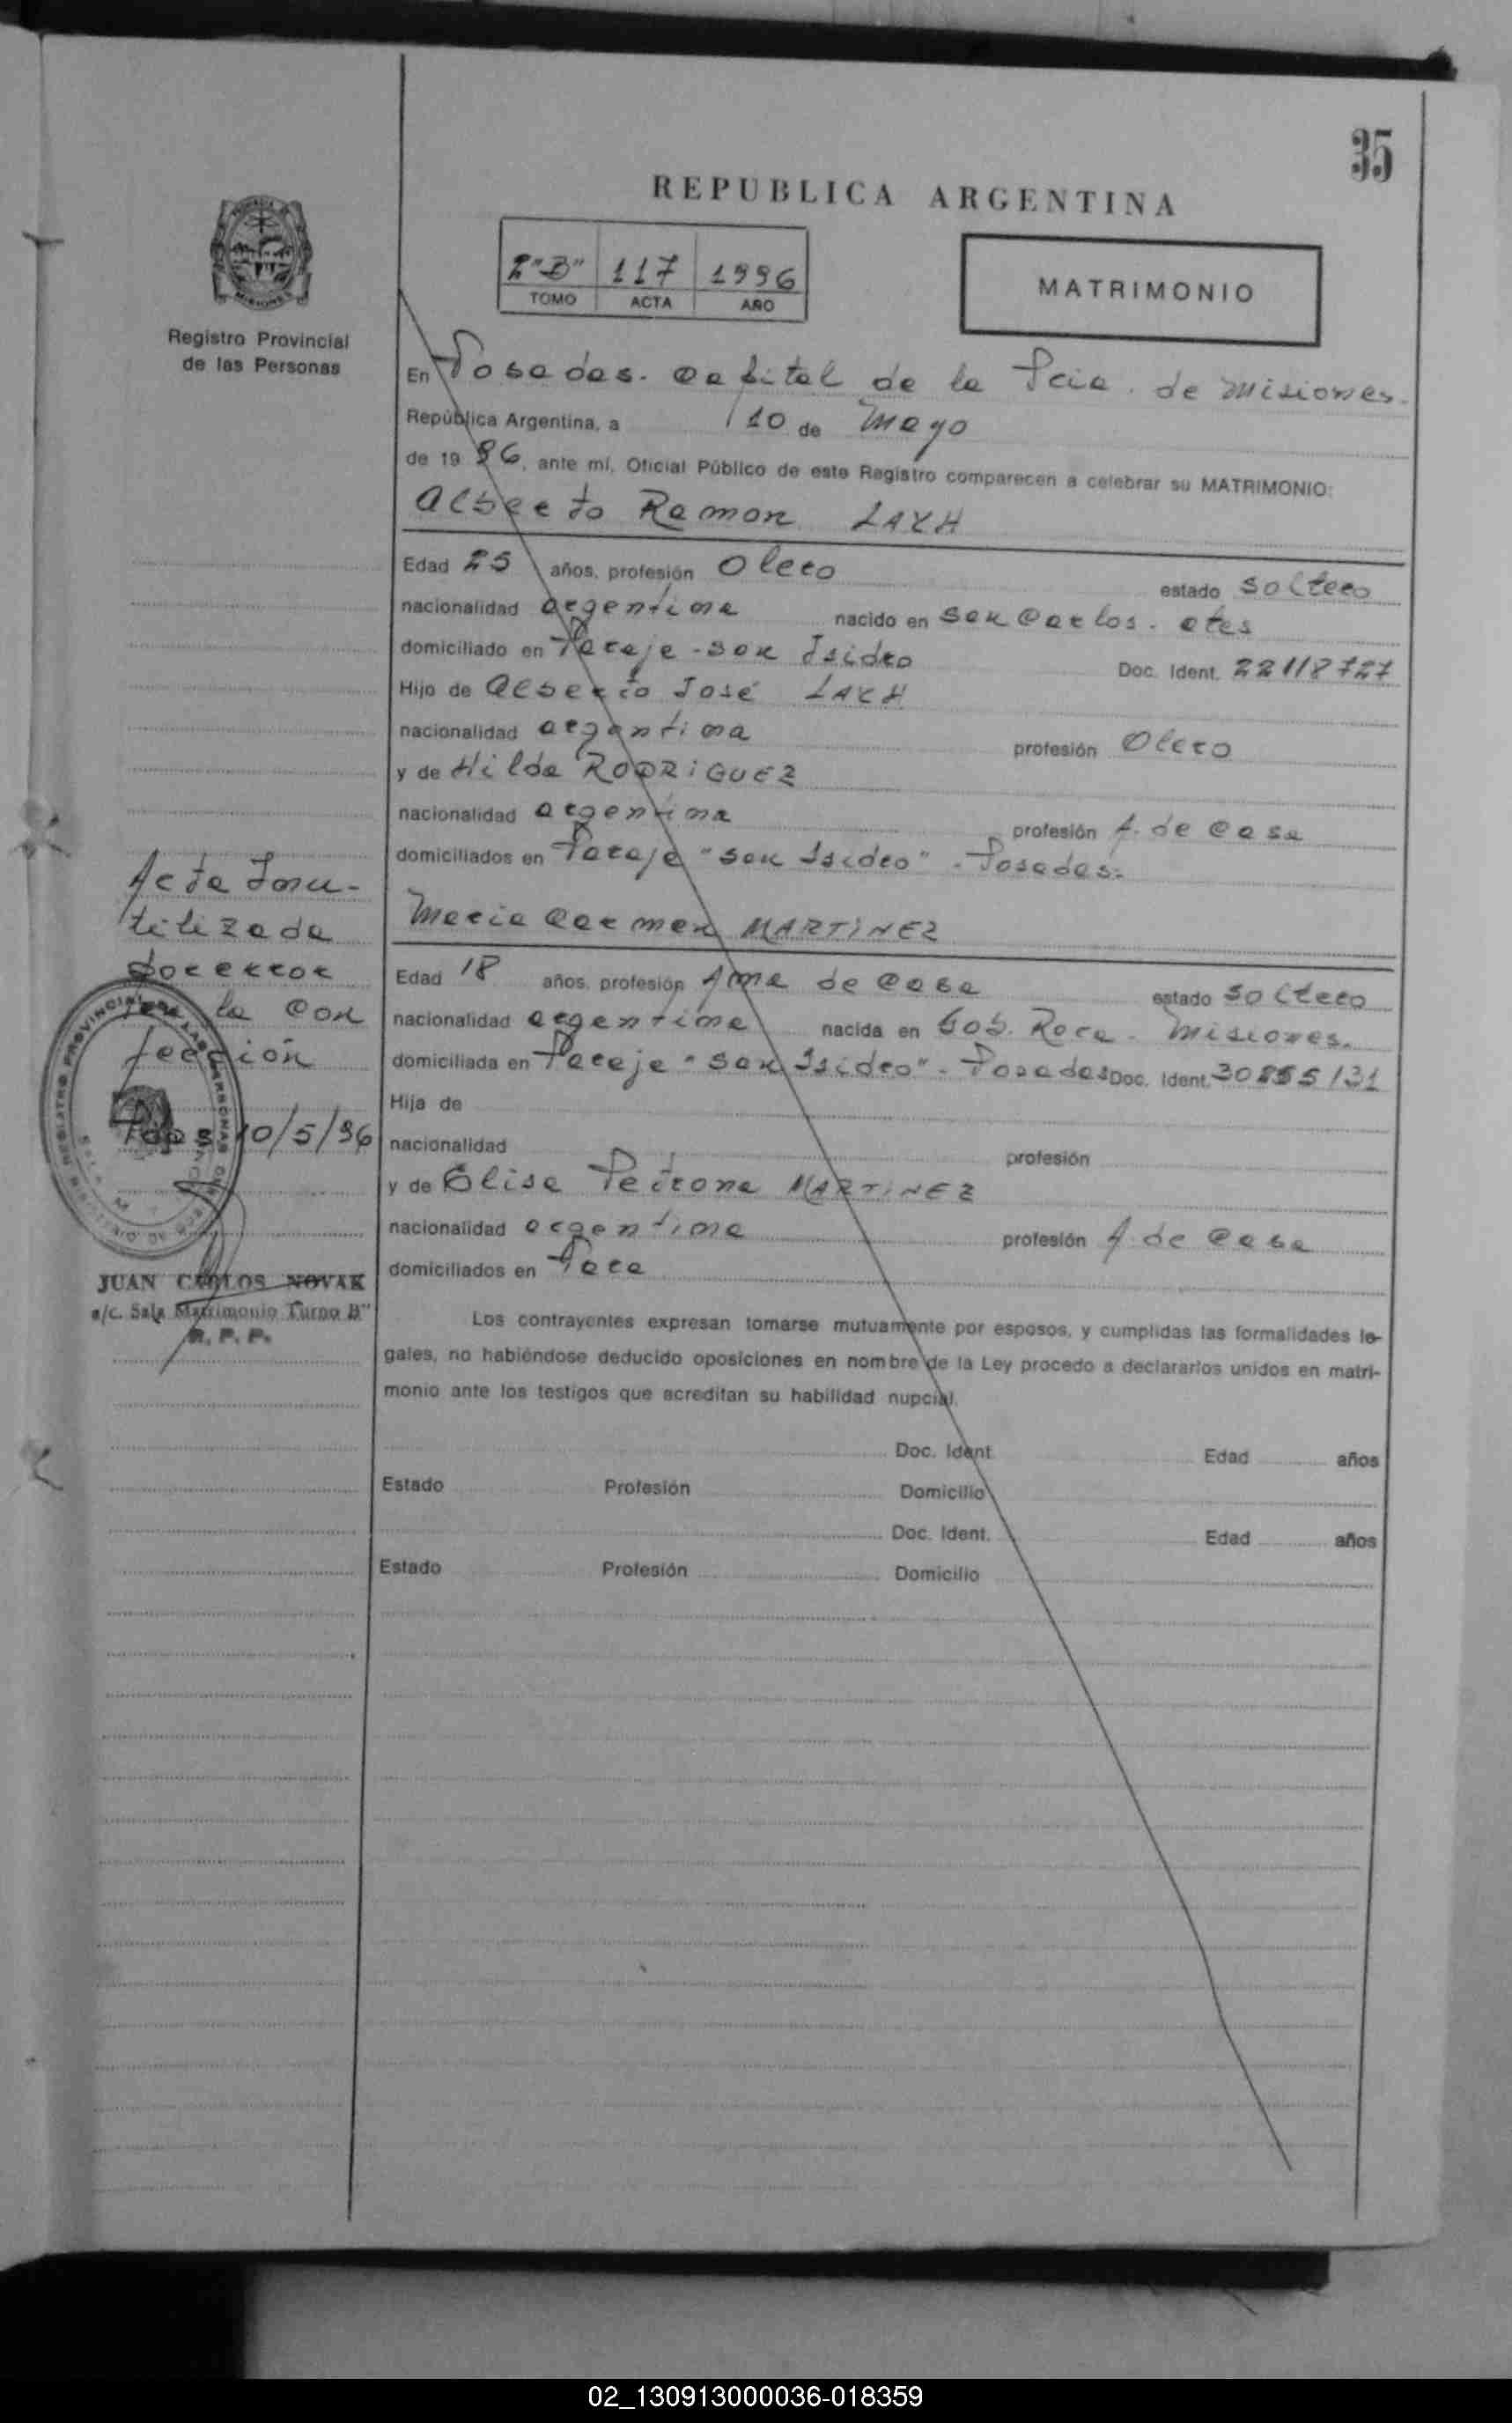 35
REPUBLICA ARGENTINA
2"B" 117 1996
TOMO ACTA AÑO
MATRIMONIO
MISIONES
Registro Provincial
de las Personas
En Posadas. Capital de la Pcia. de Misiones.
República Argentina, a 10 de Mayo
de 19 96, ante mí, Oficial Público de este Registro comparecen a celebrar su MATRIMONIO:
Alberto Ramon
Edad 25 años, profesión Olero estado soltero
nacionalidad argentina nacido en San Carlos. Ctes
domiciliado en Paraje - San Isidro Doc. Ident. 22118727
Hijo de Alberto José
nacionalidad argentina profesión Olero
y de Hilda RODRIGUEZ
nacionalidad argentina profesión A. de Casa
domiciliados en Paraje "San Isidro" - Posadas.
Maria Carmen MARTINEZ
Edad 18 años, profesión Ama de Casa estado soltero
nacionalidad argentina nacida en Gob. Roca - Misiones.
domiciliada en Paraje "San Isidro" - Posadas Doc. Ident. 30855131
Hija de
nacionalidad profesión
y de Elisa Petrona MARTINEZ
nacionalidad argentina profesión A. de Casa
domiciliados en
Los contrayentes expresan tomarse mutuamente por esposos, y cumplidas las formalidades le-
gales, no habiéndose deducido oposiciones en nombre de la Ley procedo a declararlos unidos en matri-
monio ante los testigos que acreditan su habilidad nupcial.
Doc. Ident. Edad años
Estado Profesión Domicilio
Doc. Ident. Edad años
Estado Profesión Domicilio
Acta Inu-
tilizada
por error
la con
fección
10/5/96
JUAN CARLOS NOVAK
a/c. Sala Matrimonio Turno B"
R. P. P.
02_130913000036-018359